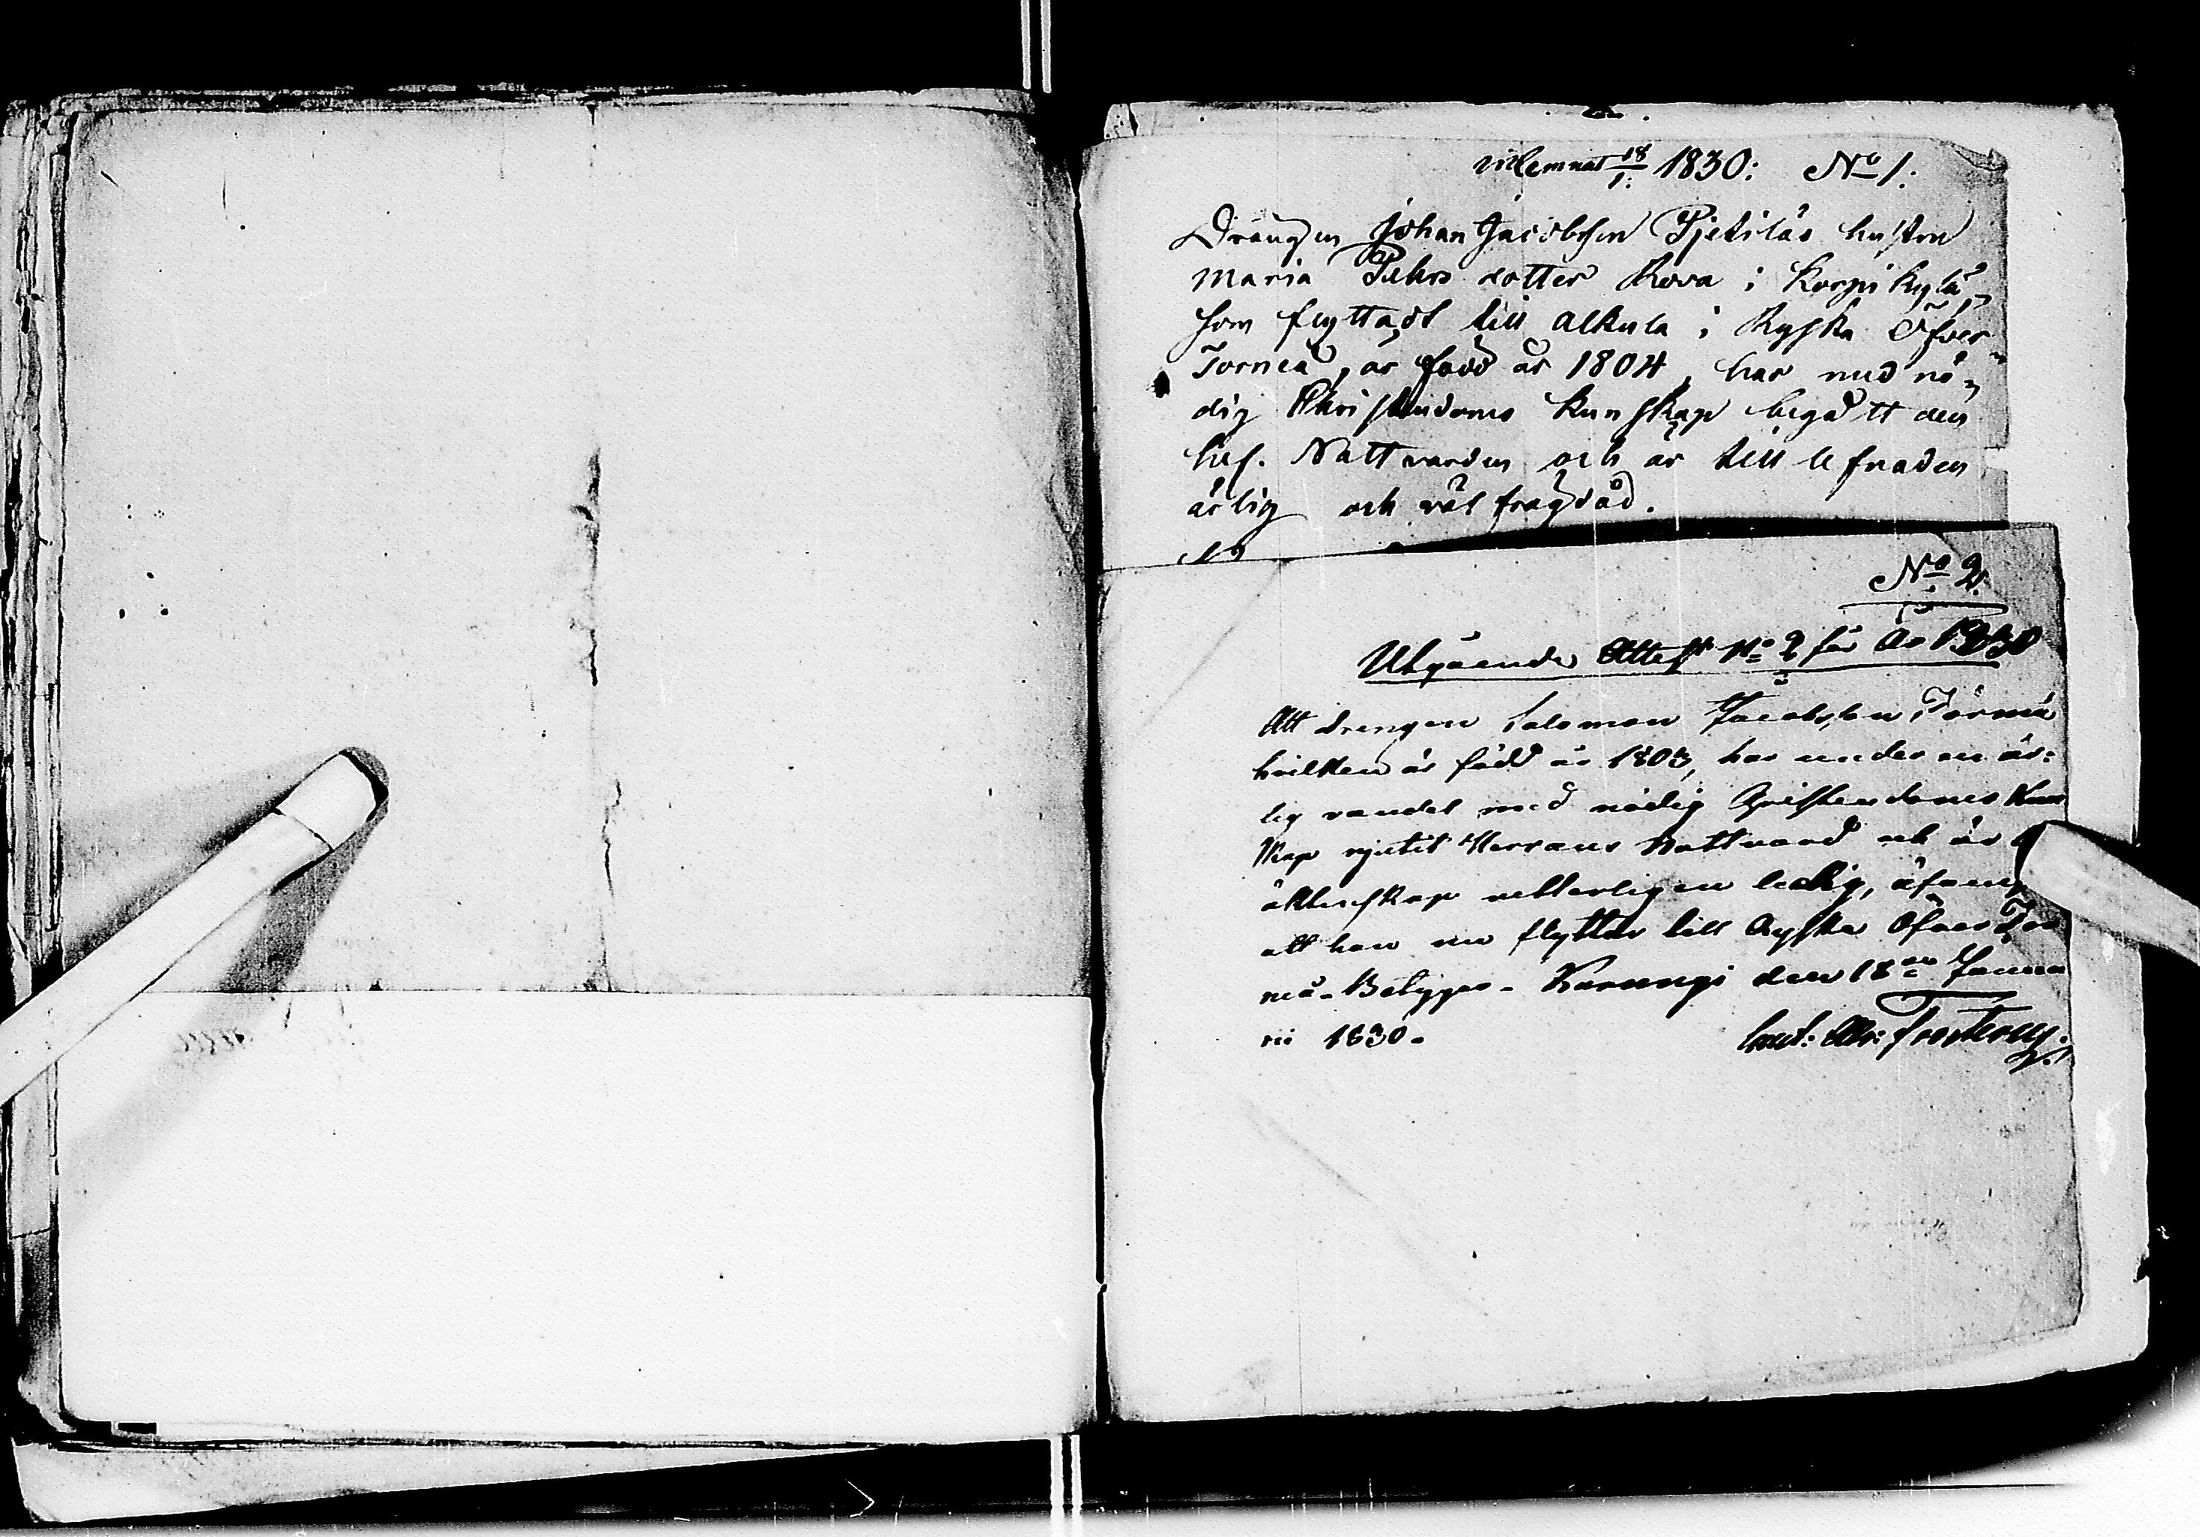 utlemnat 18/1. 1830: No 1.
Drängen Johan Jacobsson Pjetiläs hustru
Maria Pehrs dotter Rova i Korpikylä,
som flyttadt till Alkula i Ryska Öfver
Torneå, är född år 1804, har med nö-
dig Christendoms kunskap begått den
hel. Nattvarden och är till lefnaden
ärlig och väl frägdad.
No 2.
Utgående Attest No 2 för År 1830
Att drengen Salomon Jacobsson Törmä
hvilken är född år 1803, har under en är-
lig vandel med nödig Christendoms Kun
skap njutit Herrans Nattvard och är
äktenskap vetterligen ledig, äfven
att han nu flyttar till Ryska Öfver Tor
neå - Betygas - Karungi den 18de Janua
rii 1830.